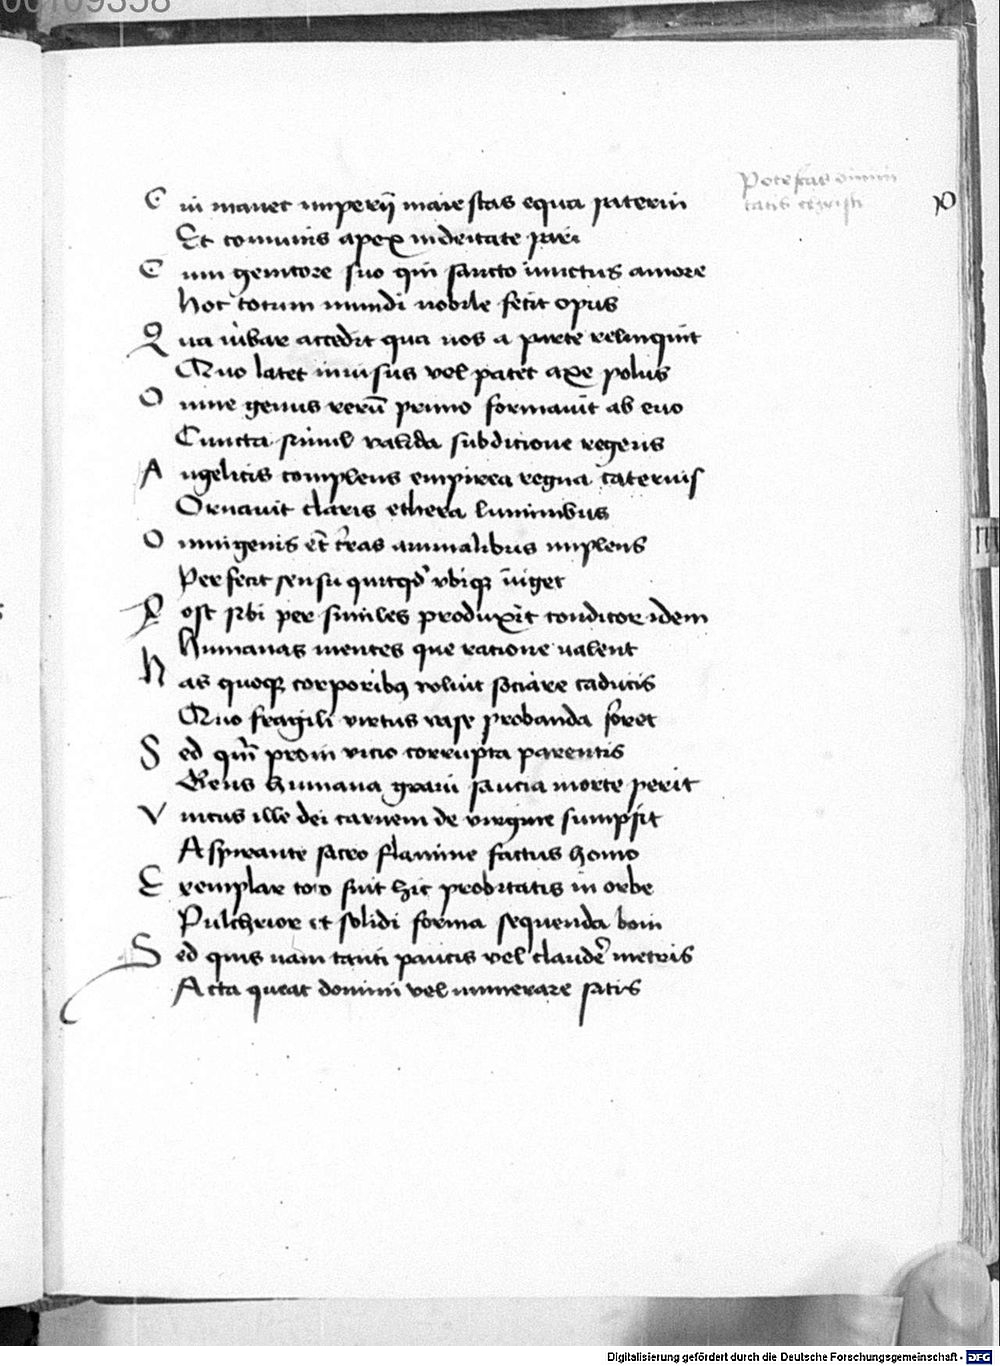 00109358
Potestas divini
tatis cristi
C ui manet imperij maiestas equa paterni
Et comunis apex in deitate pari
C um genitore suo qui sancto iunctus amore
Hoc totum mundi nobile fecit opus
Q ua iubar accedit qua nos a parte relinquit
Quo latet inuisus vel patet axe polus
O mne genus rerū primo formauit ab euo
Cuncta simul valida subdicione regens
A ngelicis complens empirea regna cateruis
Ornauit claris ethera luminibus
O mnigenis et t̄ras animalibus implens
Perfecit sensu quicqd vbiq uiget
P ost sibi per similes produxit conditor idem
Humanas mentes que racione ualent
H as quoq corporibus voluit sociare caducis
Quo fragili virtus vase probanda foret
S ed qm̄ proni vicio corrupta parentis
Gens humana graui saucia morte perit
V nicus ille dei carnem de virgine sumpsit
Aspirante sacro flamine factus homo
E xemplar toto fuit hic probitatis in orbe
Pulchrior et solidi forma sequenda boni
S ed quis nam tanti paucis vel claude metris
Acta queat domini vel numerare satis
Digitalisierung gefördert durch die Deutsche Forschungsgemeinschaft - DFG